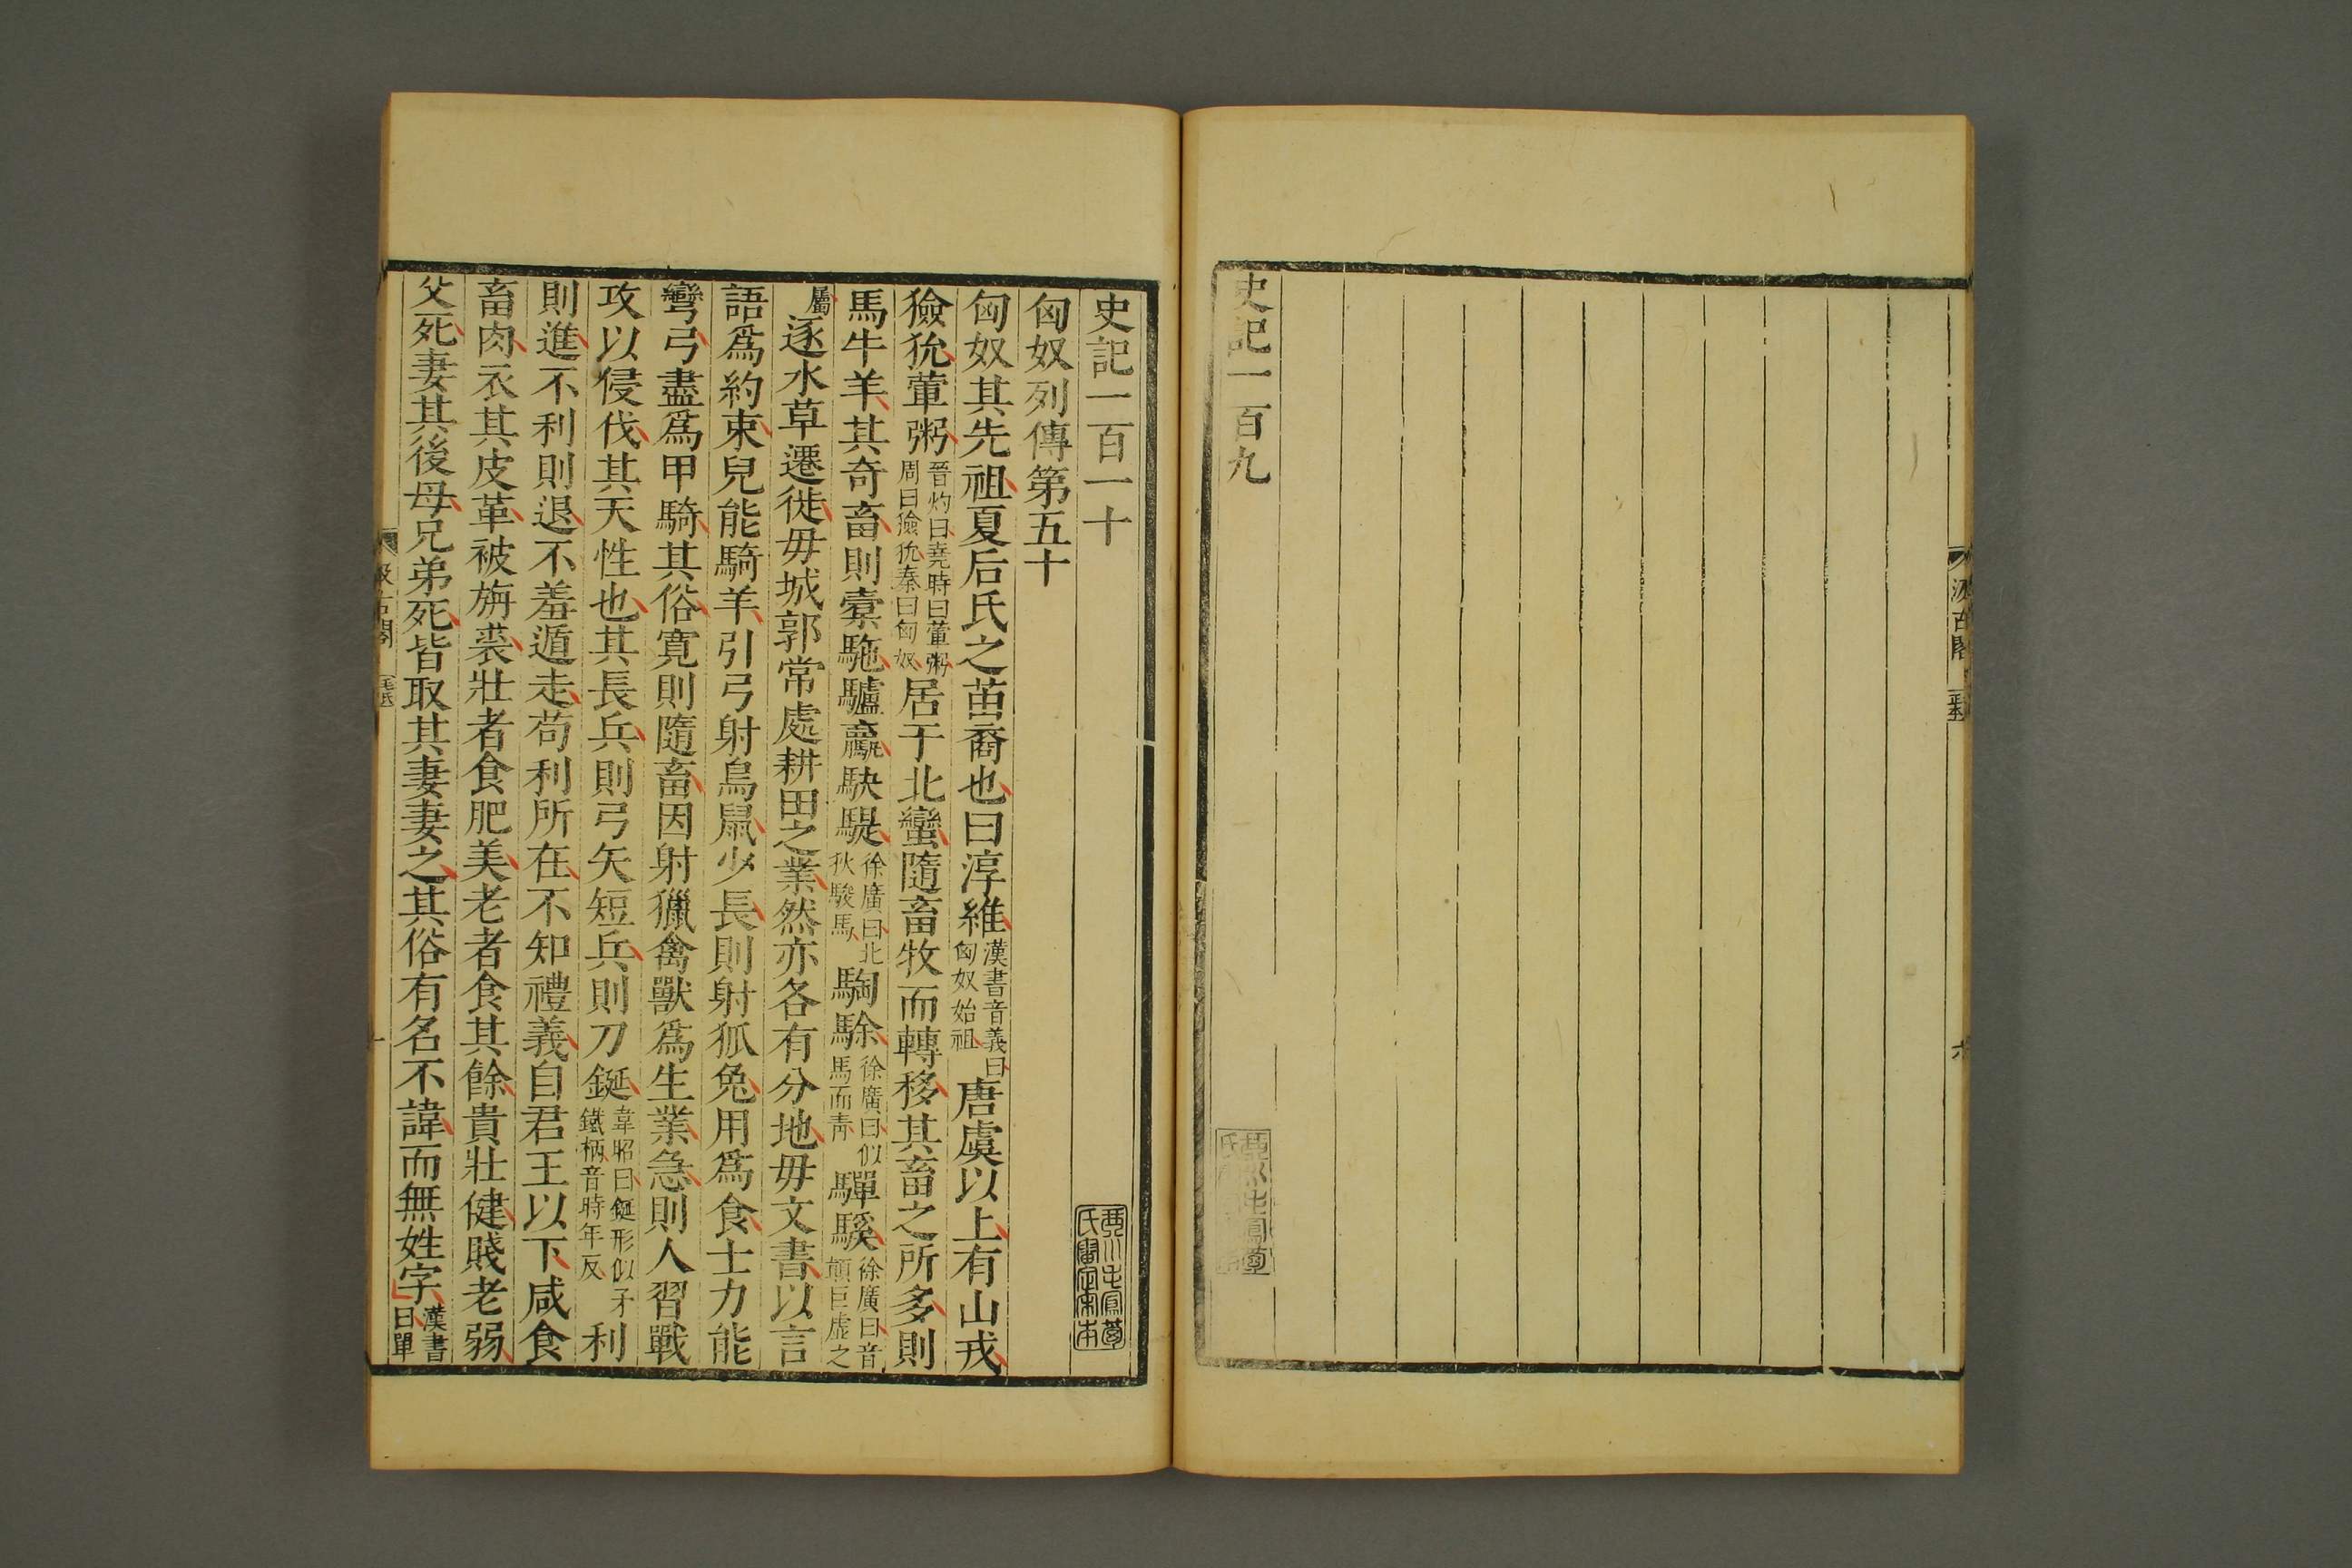 史記一百九
史記一百一十
匈奴列傳第五十
匈奴其先祖夏后氏之苗裔也曰淳維漢書音義曰匈奴始祖唐虞以上有山戎
獫狁葷粥晉灼曰堯時曰葷粥周曰獫狁秦曰匈奴居于北蠻隨畜牧而轉移其畜之所多則
馬牛羊其奇畜則橐駞驢驘駃騠徐廣曰北狄駿馬騊駼徐廣曰似馬而青驒騱徐廣曰音顛巨虛之
屬逐水草遷徙毋城郭常處耕田之業然亦各有分地毋文書以言
語爲約束兒能騎羊引弓射鳥鼠少長則射狐兔用爲食士力能
彎弓盡爲甲騎其俗寛則隨畜因射獵禽獸爲生業急則人習戰
攻以侵伐其天性也其長兵則弓矢短兵則刀鋋韋昭曰鋋形似矛鐵柄音時年反利
則進不利則退不羞遁走茍利所在不知禮義自君王以下咸食
畜肉衣其皮革被旃裘壯者食肥美老者食其餘貴壯健賤老弱
父死妻其後母兄弟死皆取其妻妻之其俗有名不諱而無姓字漢書曰單
汲古閣